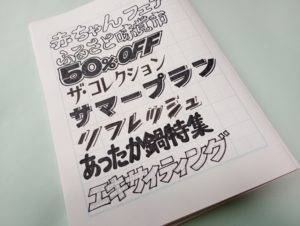 赤ちゃんフェア
ふるさと味覚市
50%OFF
ザ・コレクション
サマープラン
リフレッシュ
あったか鍋特集
エキサイティング